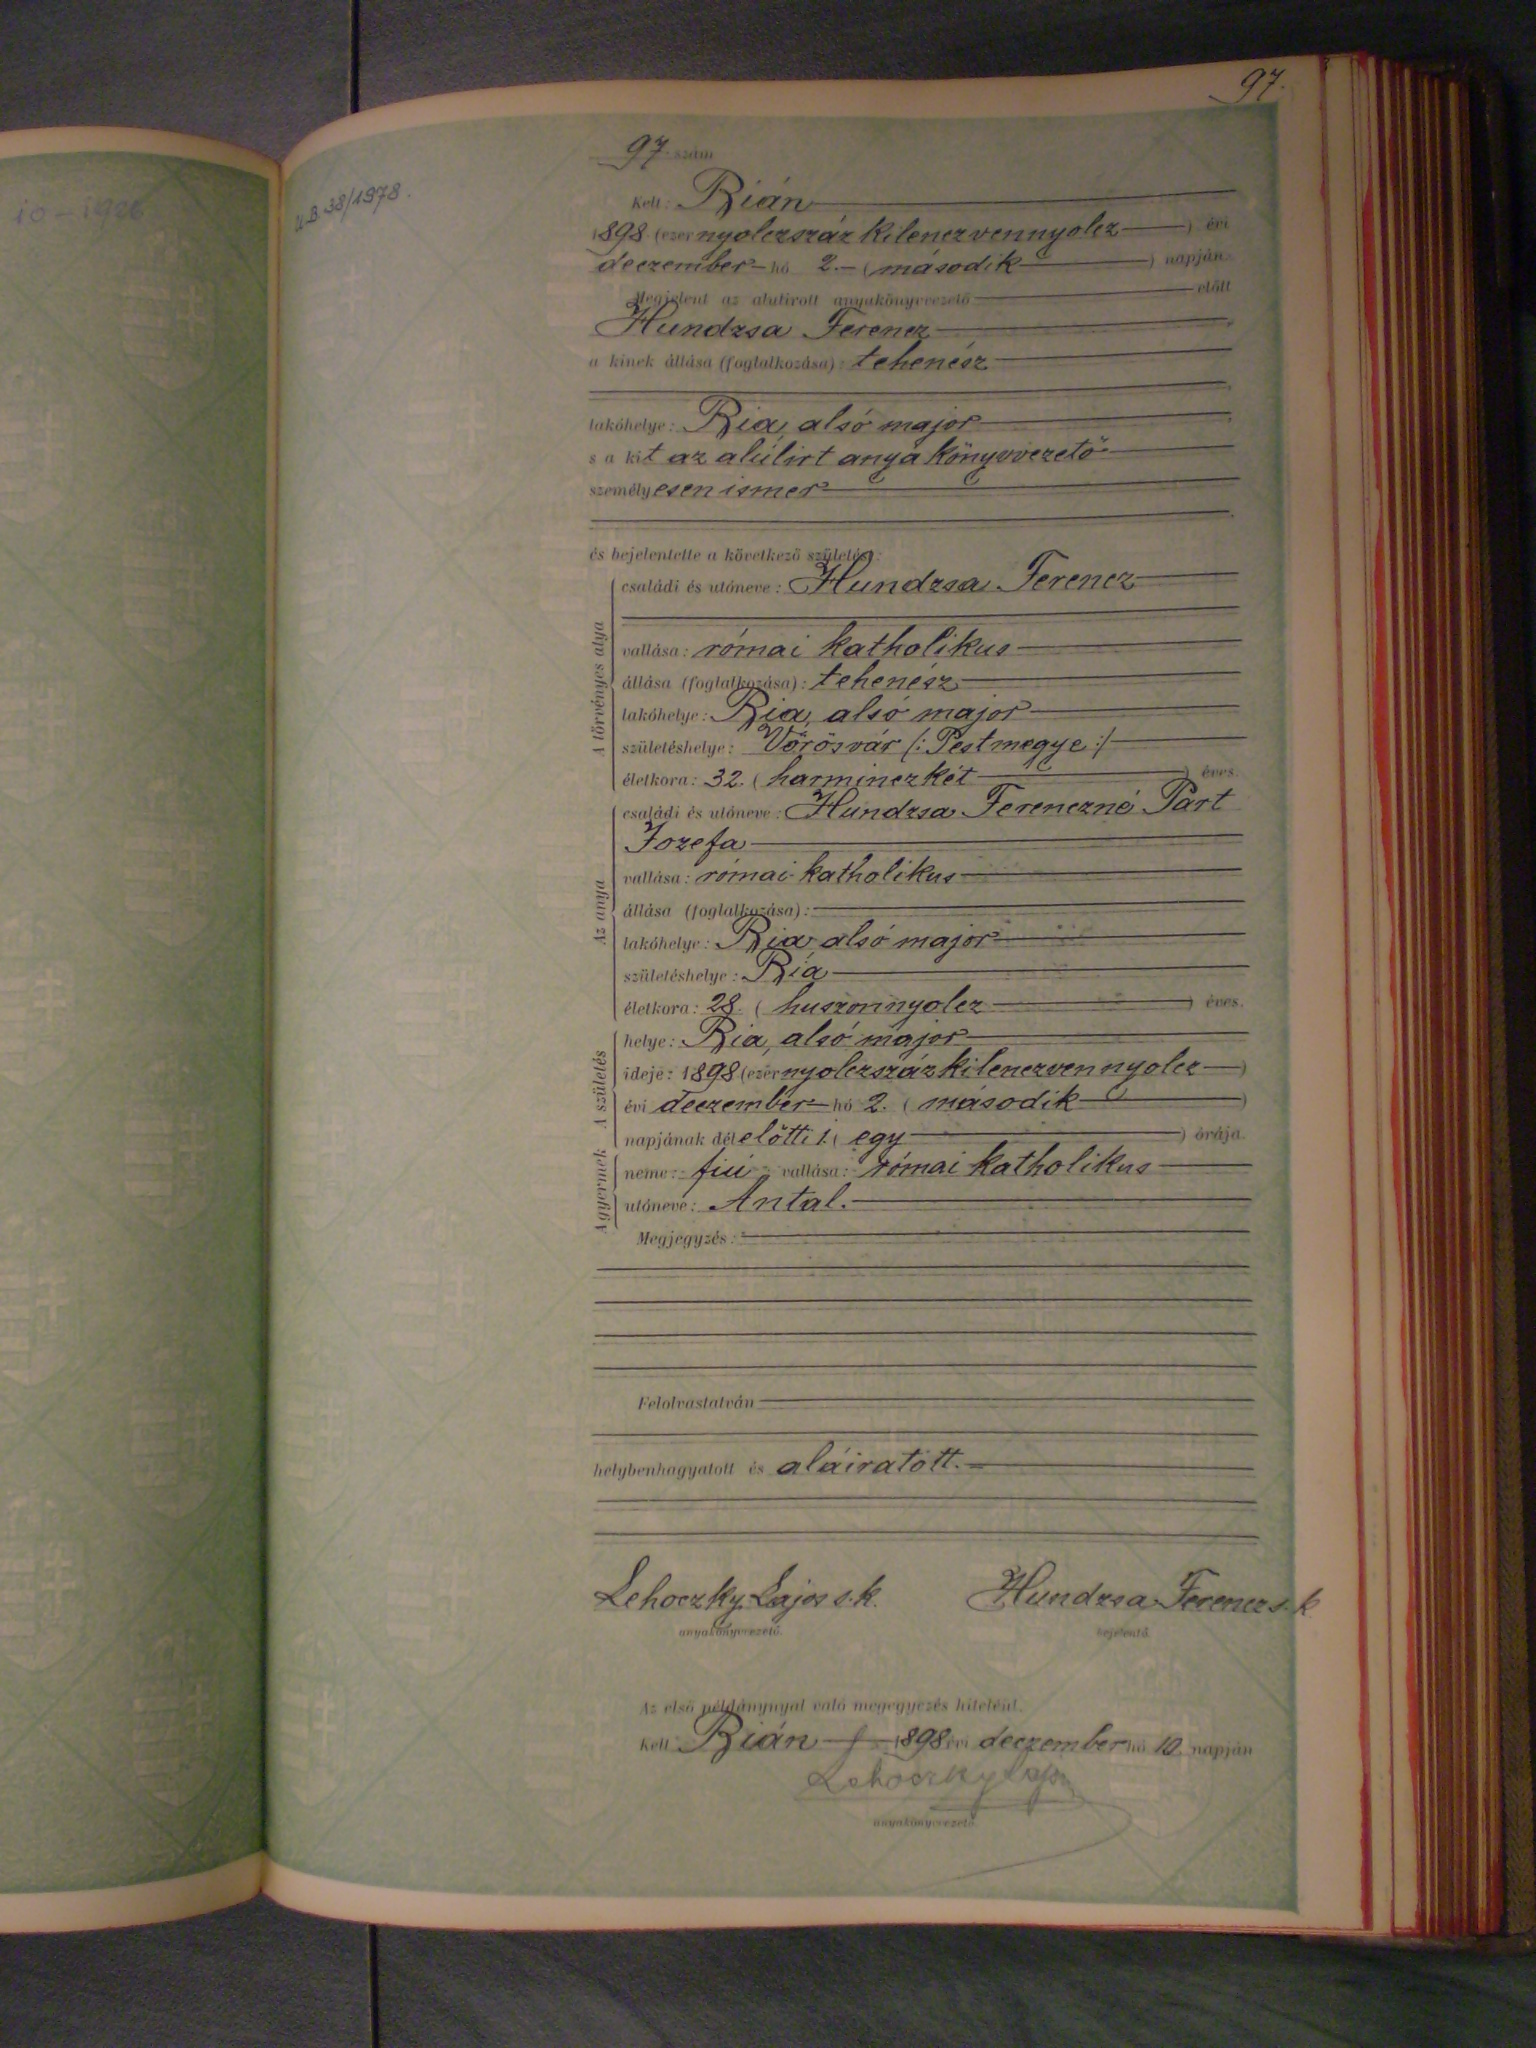 97.
97. szám
UB 38/1978.
10-1926
Kelt: Bián
1898 (ezer nyolczszáz kilenczvennyolcz) évi
deczember hó 2. (második) napján.
Megjelent az alulirott anyakönyvvezető előtt
Hundzsa Ferencz
a kinek állása (foglalkozása): tehenész
lakóhelye: Bia, alsó major
s a kit az alúlirt anyakönyvvezető
személyesen ismer
és bejelentette a következő születést:
A törvényes atya
családi és utóneve: Hundzsa Ferencz
vallása: római katholikus
állása (foglalkozása): tehenész
lakóhelye: Bia, alsó major
születéshelye: Vörösvár (: Pestmegye :)
életkora: 32. (harminczkét) éves.
Az anya
családi és utóneve: Hundzsa Ferenczné Part
Jozefa
vallása: római katholikus
állása (foglalkozása):
lakóhelye: Bia alsó major
születéshelye: Bia
életkora: 28. (huszonnyolcz) éves.
A születés
helye: Bia, alsó major
ideje: 1898 (ezer nyolczszáz kilenczven nyolcz)
évi deczember hó 2. (második)
napjának délelőtti 1. (egy) órája.
A gyermek
neme: fiú vallása: római katholikus
utóneve: Antal.
Megjegyzés:
Felolvastatván
helybenhagyatott és aláiratott.
Lehoczky Lajos s.k. Hundzsa Ferencz s.k
anyakönyvvezető. bejelentő.
Az első példánynyal való megegyezés hiteléül.
Kelt Bián 1898 évi deczember hó 10 napján
Lehoczky Lajos
anyakönyvvezető.